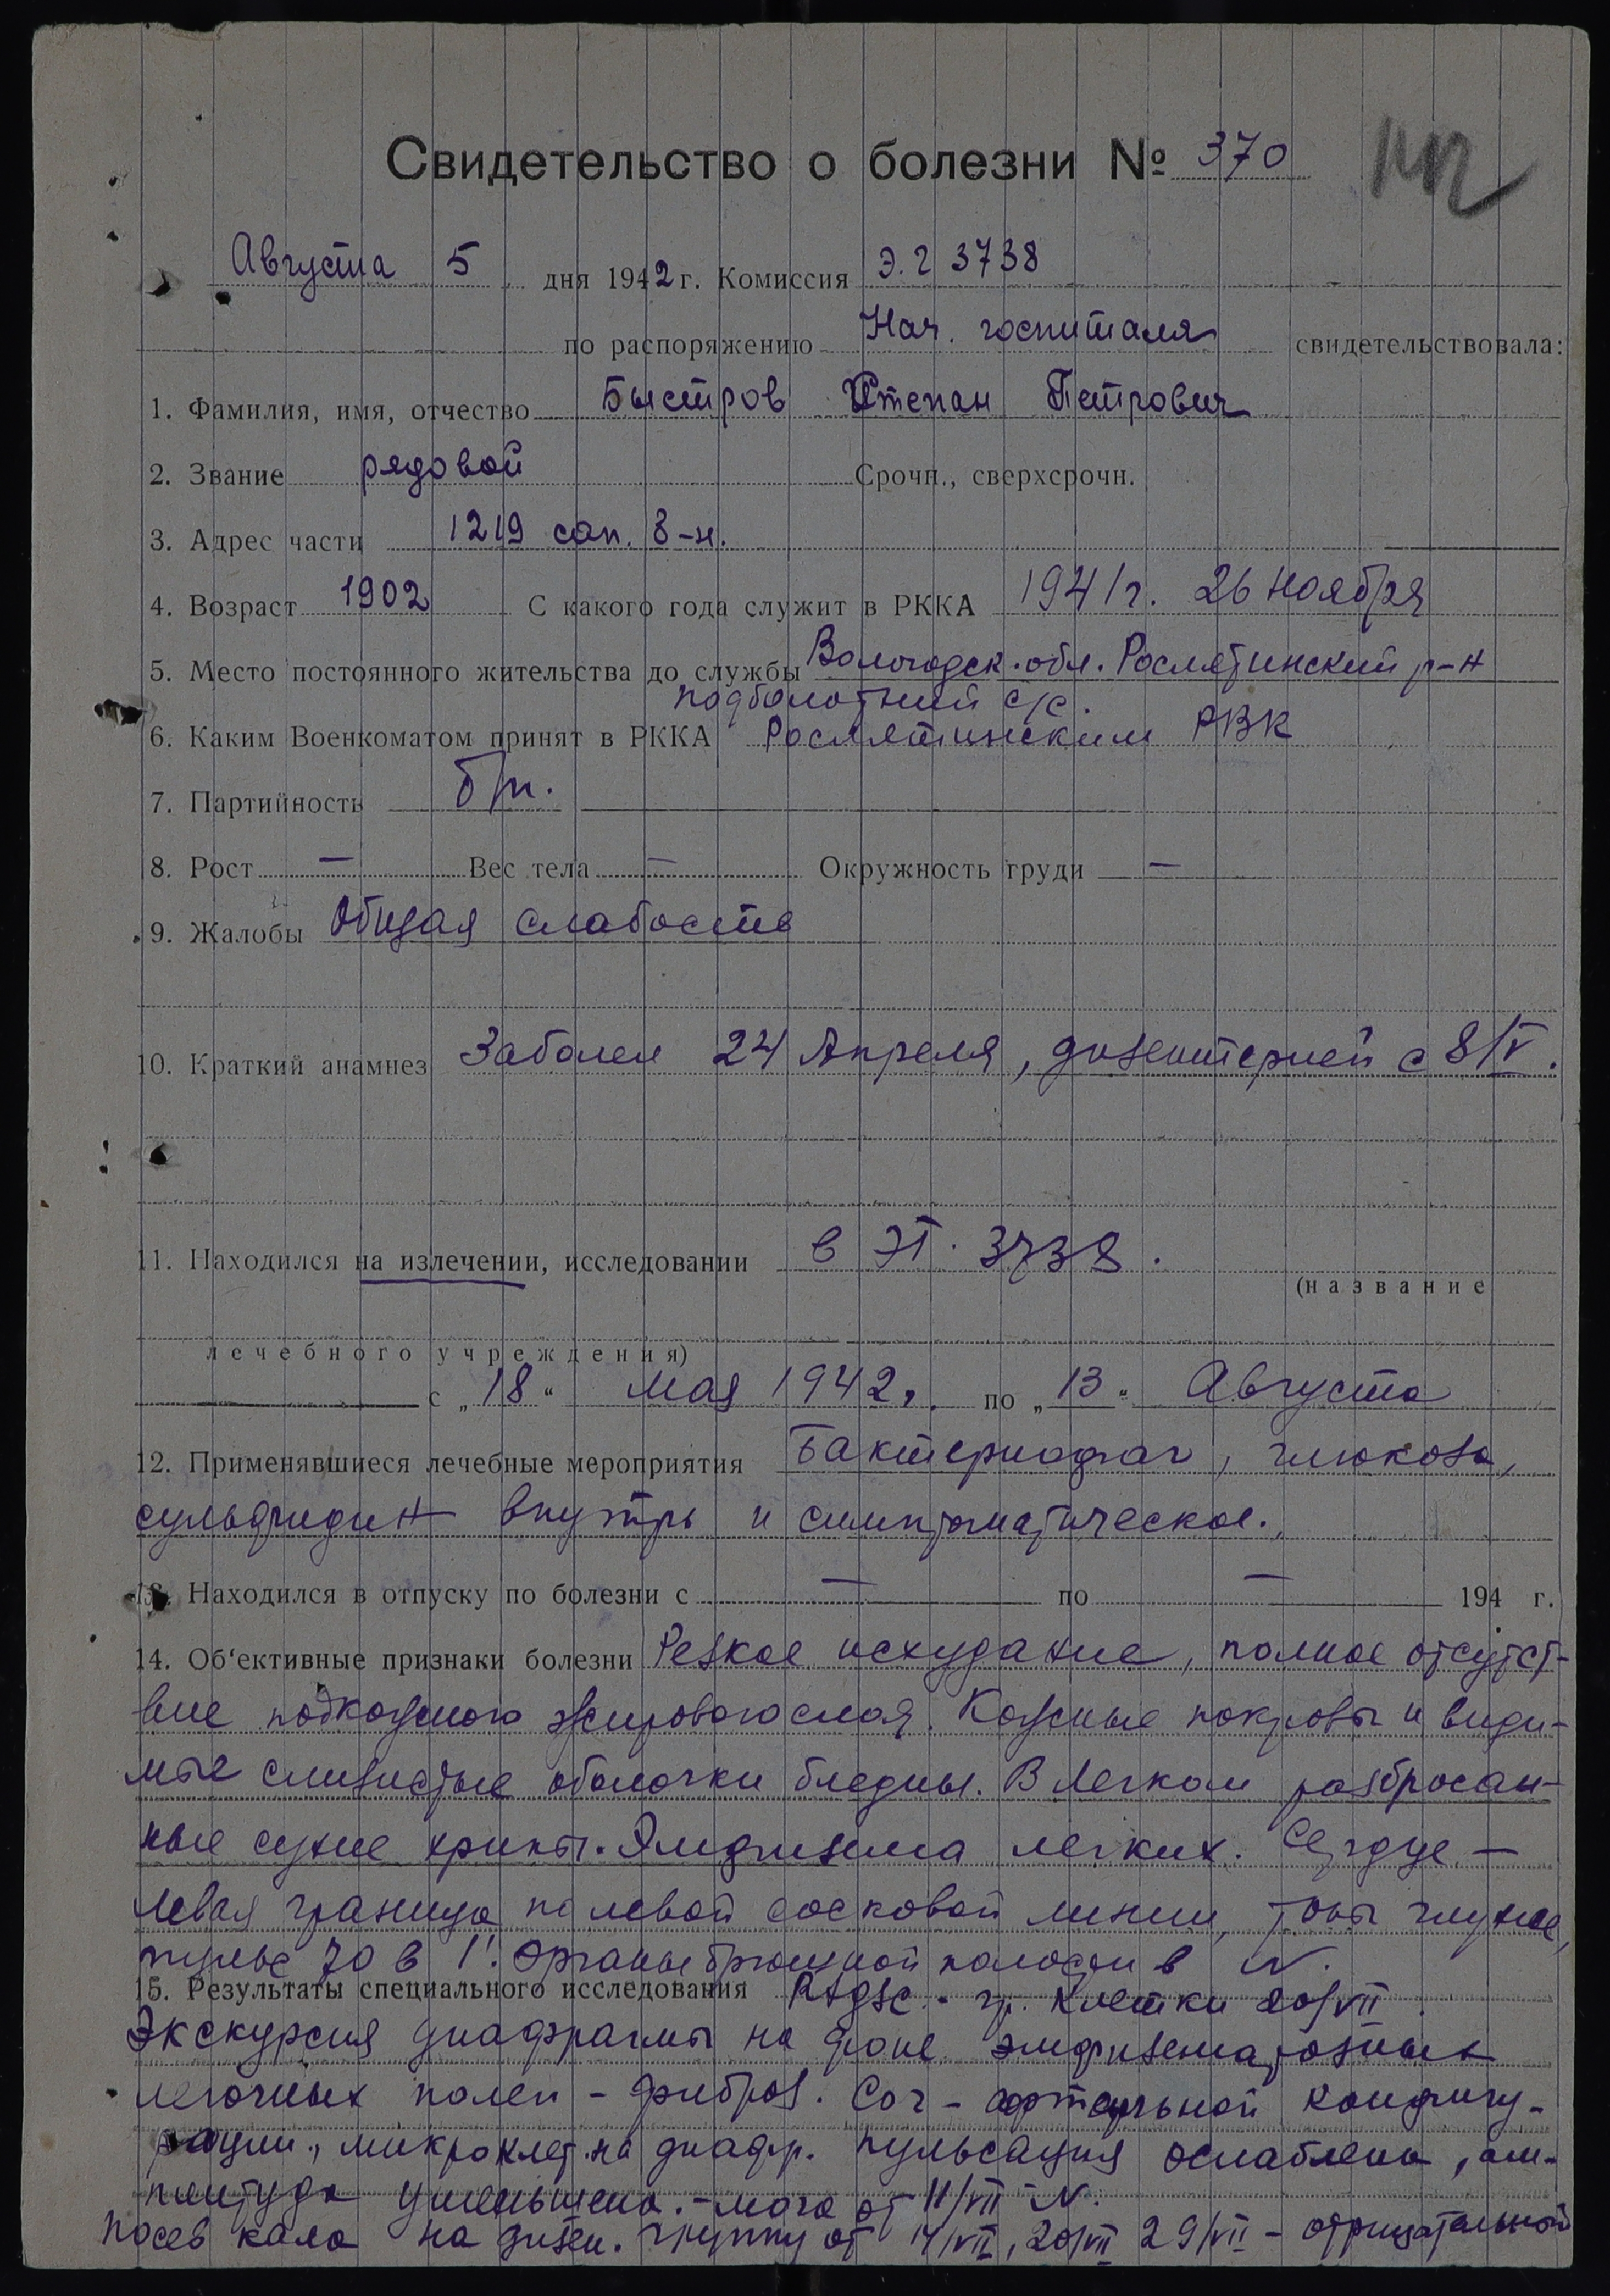 Свидетельство о болезни № 370
Августа 5 дня 1942 г. Комиссия Э.Г 3738
по распоряжению Нач. госпиталя свидетельствовала:
1. Фамилия, имя, отчество Быстров Степан Петрович
2. Звание рядовой Срочн., сверхсрочн.
3. Адрес части 1219 сап. б-н.
4. Возраст 1902 С какого года служит в РККА 1941 г. 26 ноября
5. Место постоянного жительства до службы Вологодск. обл. Рослятинский р-н
подболотный с/с.
6. Каким Военкоматом принят в РККА Рослятинским РВК
7. Партийность б/п.
8. Рост — Вес тела — Окружность груди —
9. Жалобы Общая слабость
10. Краткий анамнез Заболел 24 Апреля, дизентерией с 8/V.
11. Находился на излечении, исследовании в ЭГ. 3738.
(название
лечебного учреждения)
с „18“ мая 1942 г. по „13“ Августа
12. Применявшиеся лечебные мероприятия Бактериофаг, глюкоза,
сульфидин внутрь и симптоматическое.
13. Находился в отпуску по болезни с — по — 194 г.
14. Об‘ективные признаки болезни Резкое исхудание, полное отсутст-
вие подкожного жирового слоя. Кожные покровы и види-
мые слизистые оболочки бледны. В легком разбросан-
ные сухие хрипы. Эмфизема легких. Сердце —
левая граница по левой сосковой линии, тоны глухие,
пульс 70 в 1'. Органы брюшной полости в N.
15. Результаты специального исследования гр. клетки 20/VII.
Экскурсия диафрагмы на фоне эмфизематозных
легочных полей - фиброз. Cor - аортальной конфигу-
рации, на диафр. пульсация ослаблена, ам-
плитуда уменьшена. - моча от 11/VII N.
Посев кала на дизен. группу от 14/VII, 20/VII 29/VII - отрицательной